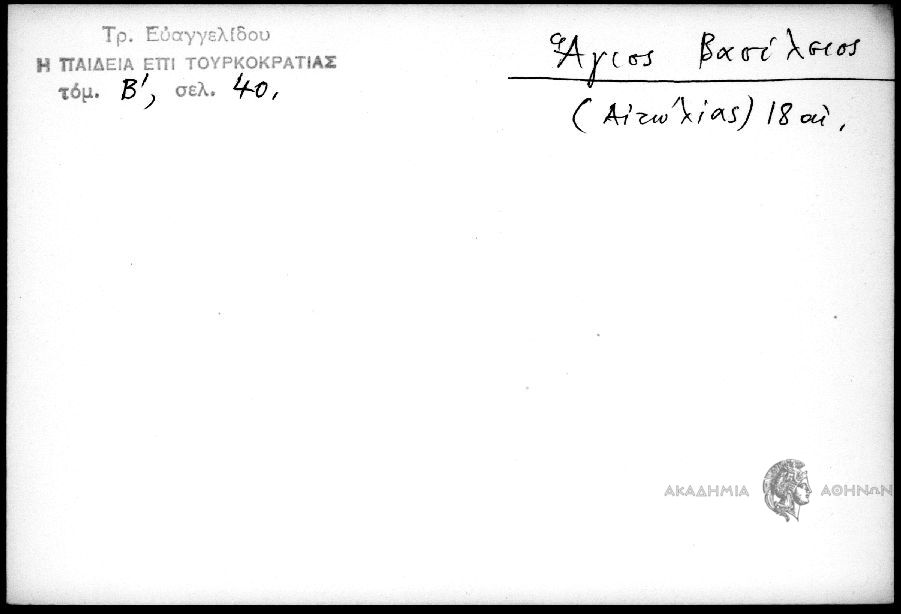 Τρ. Εὐαγγελίδου
Η ΠΑΙΔΕΙΑ ΕΠΙ ΤΟΥΡΚΟΚΡΑΤΙΑΣ
τόμ. Β', σελ. 40.
Ἅγιος Βασίλειος
(Αἰτωλίας) 18 αἰ.
ΑΚΑΔΗΜΙΑ ΑΘΗΝΩΝ